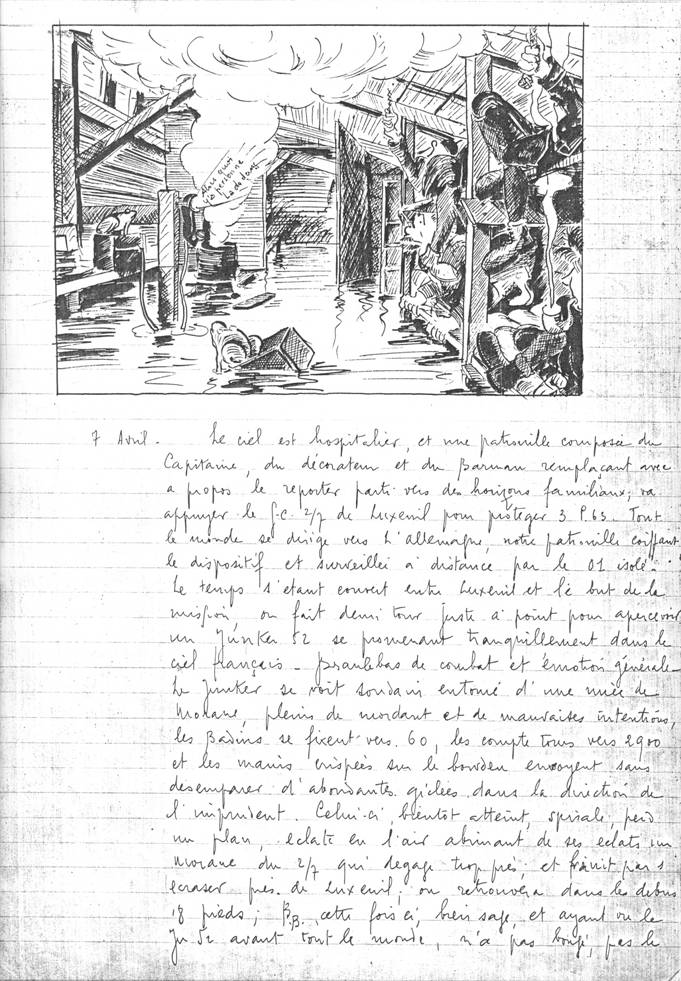 Mais quoi
y'a personne
là dedans
7 Avril. Le ciel est hospitalier, et une patrouille composée du
Capitaine, du décorateur et du Barman remplaçant avec
a propos le reporter parti vers des horizons familiaux; va
appuyer le G.C. 2/7 de Luxeuil pour protéger 3 P.63. Tout
le monde se dirige vers l'Allemagne, notre patrouille coiffant
le dispositif et surveillée à distance par le 01 isolé.
Le temps s'étant couvert entre Luxeuil et le but de la
mission, on fait demi tour juste à point pour apercevoir
un Junker 52 se promenant tranquillement dans le
ciel français - Branlebas de combat et émotion générale -
Le Junker se voit soudain entouré d'une nuée de
Morane, pleins de mordant et de mauvaises intentions,
les Badins se fixent vers 60, les compte tours vers 2900
et les mains crispées sur le bowden envoyent sans
desemparer d'abondantes giclées dans la direction de
l'imprudent. Celui-ci, bientôt atteint, spirale, perd
un plan, eclate en l'air abimant de ses eclats un
Morane du 2/7 qui dégage trop près, et finit par s
ecraser près de Luxeuil; on retrouvera dans les debris
18 pieds; B.B. cette fois ci, bien sage, et ayant vu le
Ju 52 avant tout le monde, n'a pas bougé, pas le